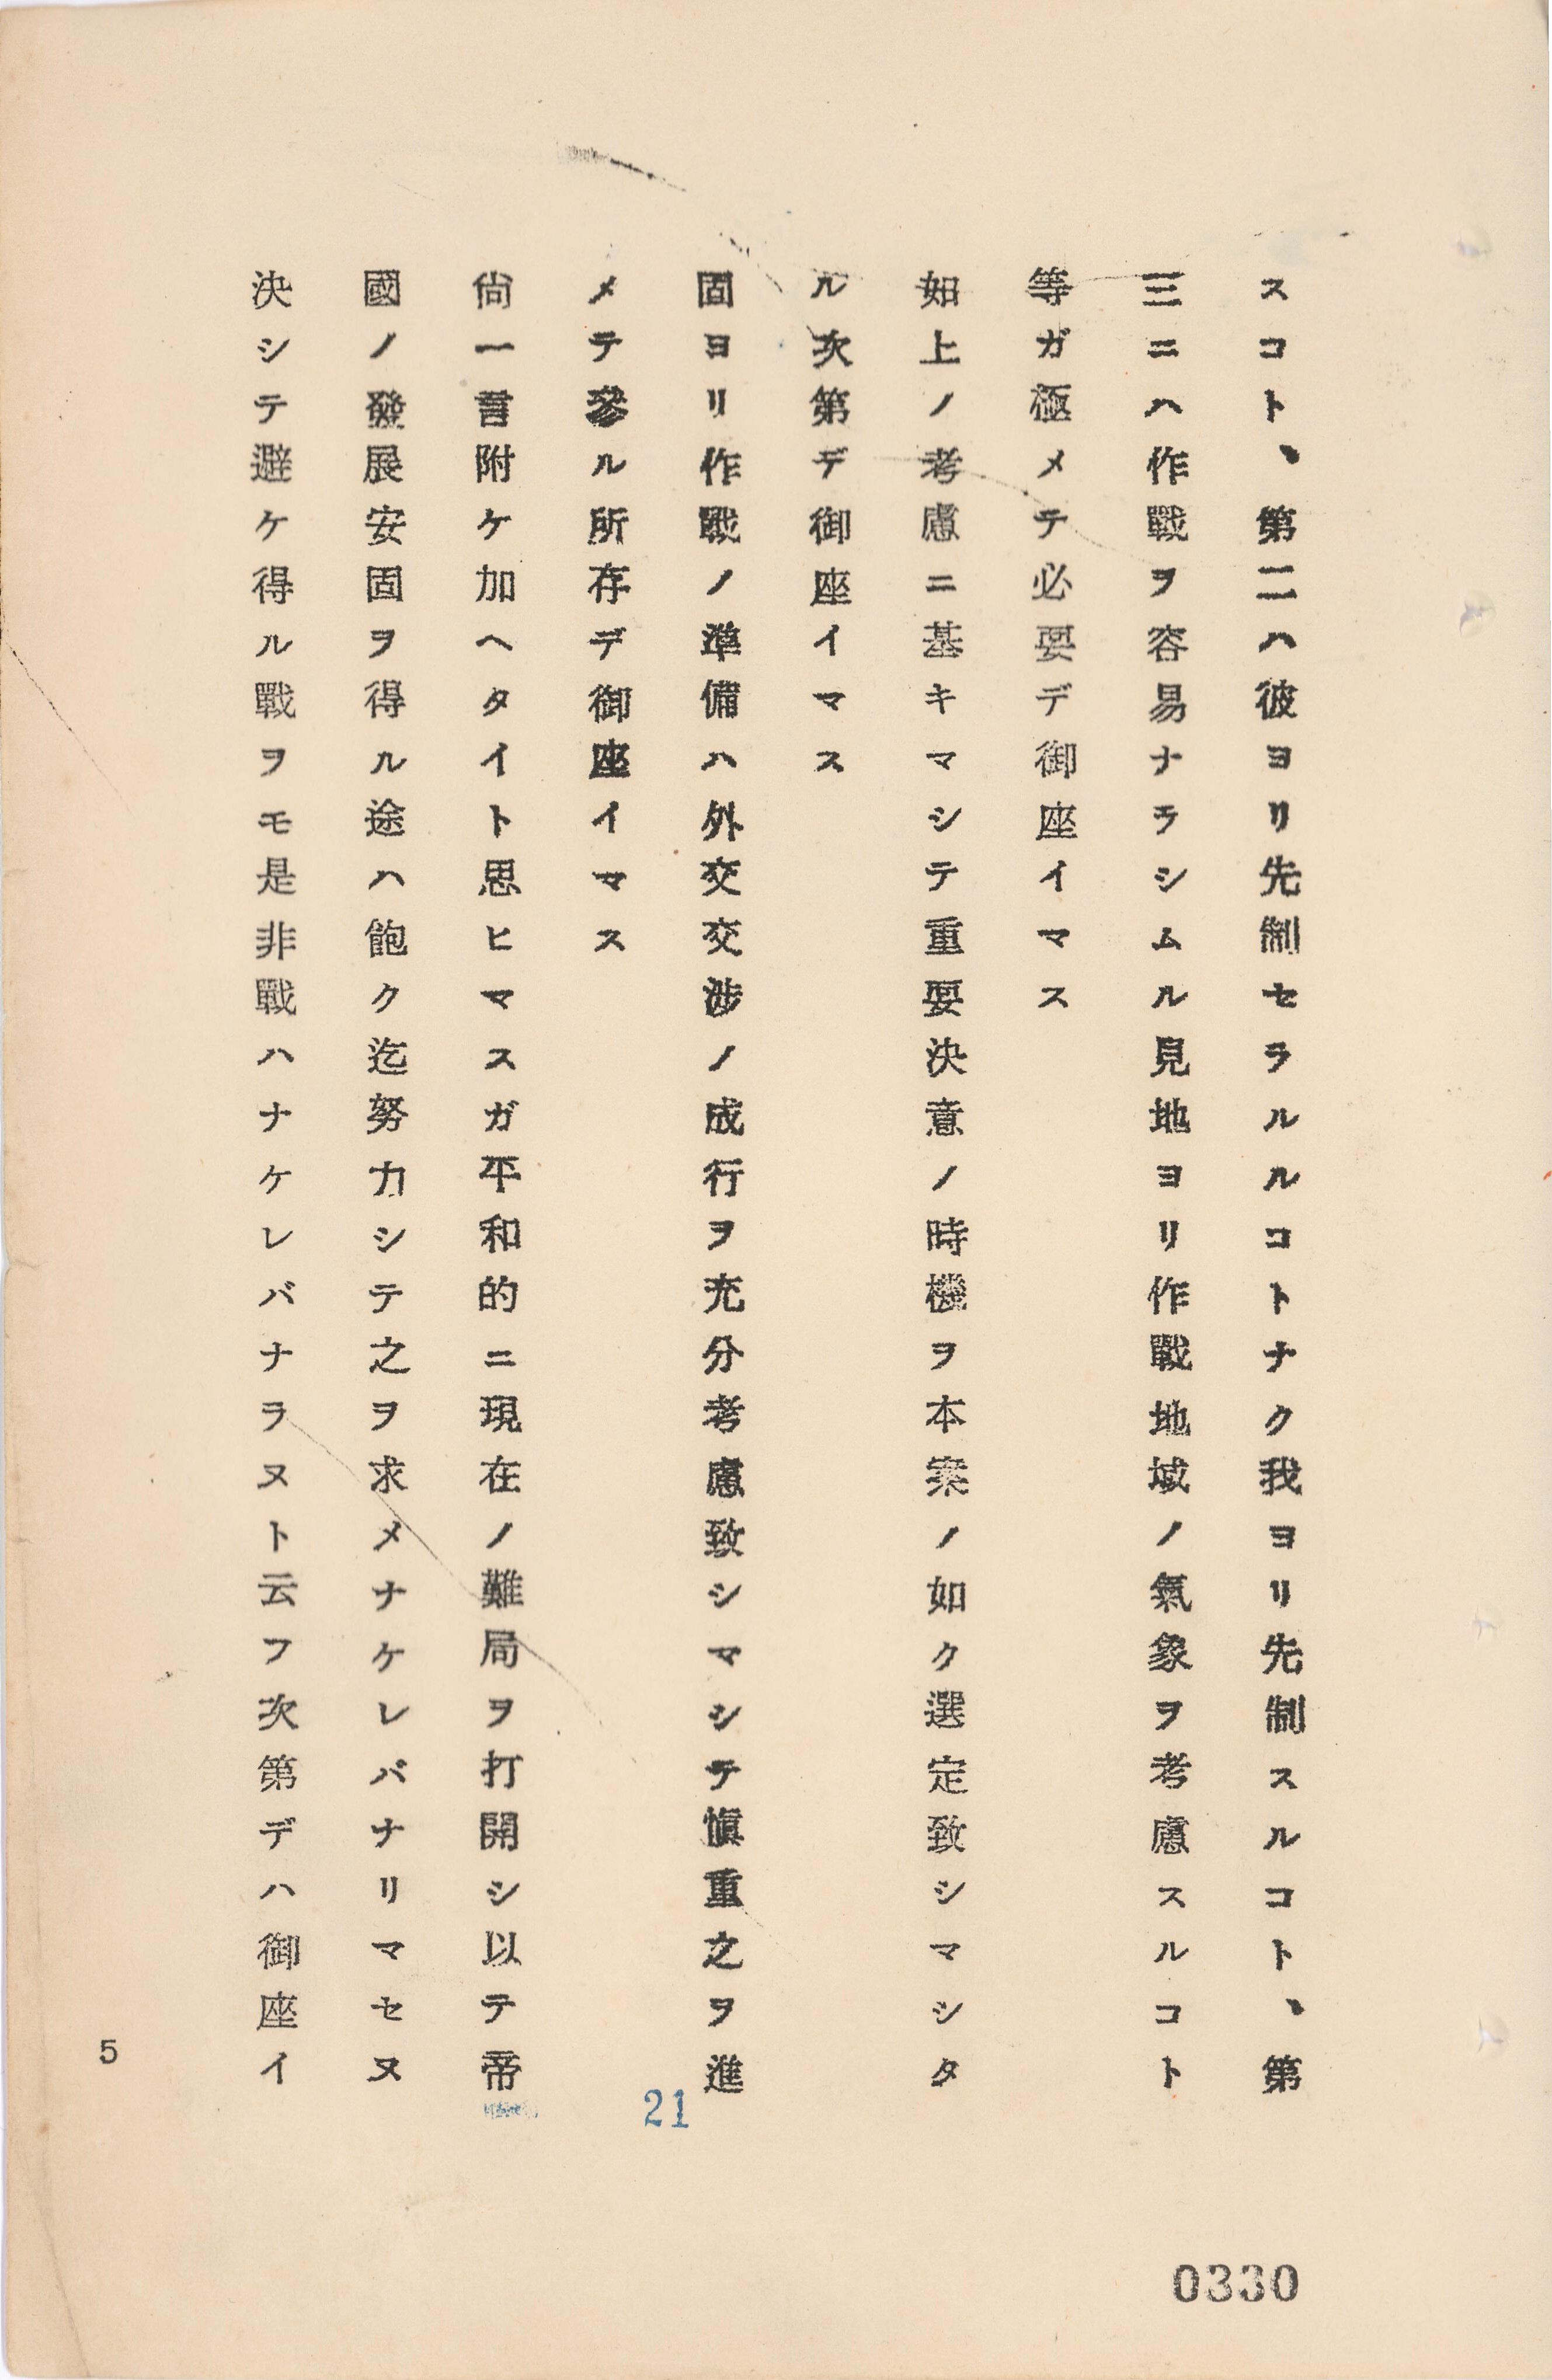 スコト、第二ハ彼ヨリ先制セラルルコトナク我ヨリ先制スルコト、第
三ニハ作戰ヲ容易ナラシムル見地ヨリ作戰地域ノ氣象ヲ考慮スルコト
等ガ極メテ必要デ御座イマス
如上ノ考慮ニ基キマシテ重要決意ノ時機ヲ本案ノ如ク選定致シマシタ
ル次第デ御座イマス
固ヨリ作戰ノ準備ハ外交交涉ノ成行ヲ充分考慮致シマシテ愼重之ヲ進
メテ參ル所存デ御座イマス
尙一言附ケ加ヘタイト思ヒマスガ平和的ニ現在ノ難局ヲ打開シ以テ帝
國ノ發展安固ヲ得ル途ハ飽ク迄努力シテ之ヲ求メナケレバナリマセヌ
決シテ避ケ得ル戰ヲモ是非戰ハナケレバナラヌト云フ次第デハ御座イ
5
21
0330